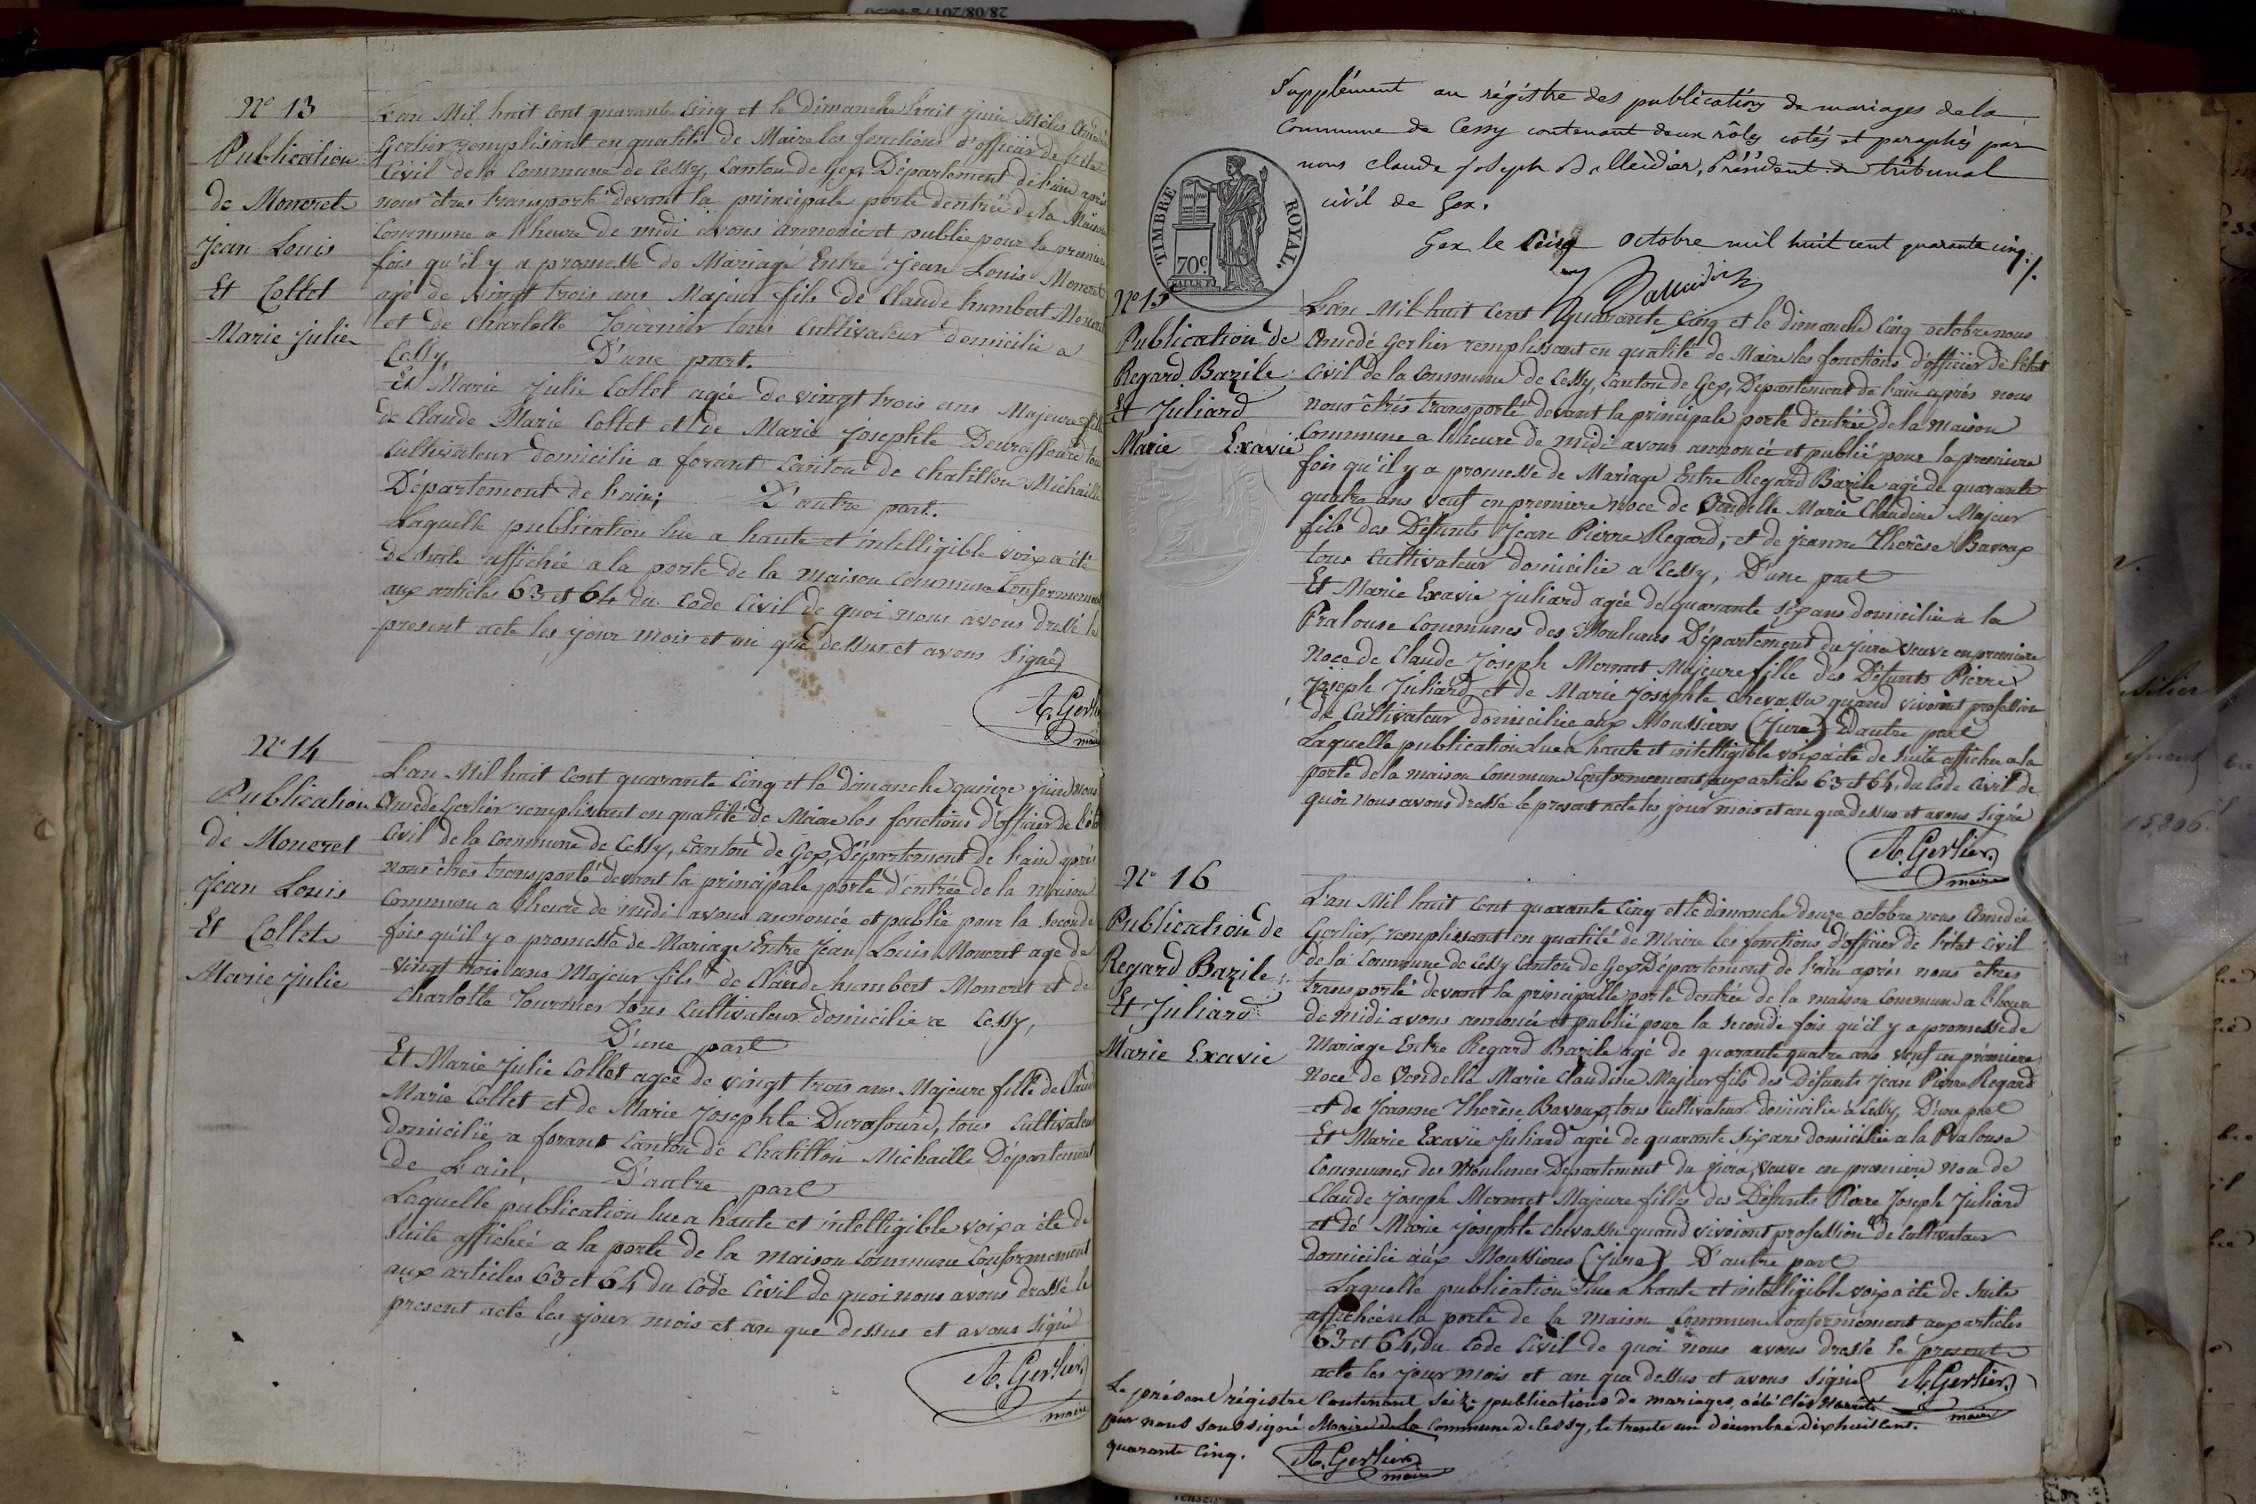 N° 13
Publication
de Moneret
Jean Louis
Et Collet
Marie Julie
L'an Mil huit Cent quarante Cinq et le dimanche huit juin
Gerlier remplissant en qualité de Maire les fonctions d'officier de
Civil de la Commune de Cessy, Canton de Gex, Département de l'ain après
nous êtres transporté devant la principale porte d'entrée de la Maison
Commune a l'heure de midi avons annoncé et publié pour la première
fois qu'il y a promesse de Mariage Entre Jean Louis Moneret
agé de vingt trois ans Majeur fils de Claude humbert Moneret
et de Charlotte Tournier tous Cultivateur domicilié a
Cessy, D'une part.
Et Marie Julie Collet agée de vingt trois ans Majeure fille
de Claude Marie Collet et de Marie Josephte tous
Cultivateur domicilié a forant Canton de Chatillon Michaille
Département de l'ain; D'autre part.
Laquelle publication lue a haute et intelligible voix a été
de suite affichée a la porte de la maison Commune Conformement
aux articles 63 et 64 du Code Civil de quoi nous avons dressé le
present acte les jour mois et an que dessus et avons signé
A. Gerlier
maire
N° 14
Publication
de Moneret
Jean Louis
Et Collet
Marie Julie
L'an Mil huit Cent quarante Cinq et le dimanche quinze juin nous
Amédé Gerlier remplissant en qualité de Maire les fonctions d'officier de l'état
Civil de la Commune de Cessy, Canton de Gex, Département de l'ain après
nous êtres transporté devant la principale porte d'entrée de la maison
Commune a l'heure de midi avons annoncé et publié pour la seconde
fois qu'il y a promesse de Mariage Entre Jean Louis Moneret agé de
vingt trois ans Majeur fils de Claude humbert Moneret et de
Charlotte Tournier tous Cultivateur domicilié a Cessy,
D'une part
Et Marie Julie Collet agée de vingt trois ans Majeure fille de Claude
Marie Collet et de Marie Josephte Durafourd, tous Cultivateur
domicilié a forant Canton de Chatillon Michaille Département
de L'ain, D'autre part
Laquelle publication lue a haute et intelligible voix a été de
suite affichée a la porte de la maison Commune Conformement
aux articles 63 et 64 du Code Civil de quoi nous avons dressé le
present acte les jour mois et an que dessus et avons signé
A. Gerlier.
maire
Supplément au régistre des publications de mariages de la
Commune de Cessy contenant deux rôles cotés et paraphés par
nous claude joseph Balleidier, Président du tribunal
civil de Gex.
Gex le Cinq Octobre mil huit cent quarante cinq ./.
TIMBRE ROYAL.
70c
N° 15
Publication de
Regard Bazile
Et Juliard
Marie Exavie
L'an Mil huit Cent Quarante Cinq et le dimanche Cinq octobre nous
Amédé Gerlier remplissant en qualité de Maire les fonctions d'officier de l'état
Civil de la Commune de Cessy, Canton de Gex, Département de l'ain après nous
nous êtres transporté devant la principale porte d'entrée de la maison
Commune a l'heure de midi avons annoncé et publié pour la premiere
fois qu'il y a promesse de Mariage Entre Regard Bazile agé de quarante
quatre ans veuf en premiere noce de Vendelle Marie Claudine Majeur
fils des Défunts Jean Pierre Regard, et de jeanne Therèse Bavoux
tous Cultivateur domicilié a Cessy, D'une part
Et Marie Exavie Juliard agée de quarante six ans domicilié a la
Pralouse Communes des Moulunes Département du jura veuve en premiere
Noce de Claude Joseph Mermet Majeure fille des Défunts Pierre
Joseph Juliard et de Marie Josephte Chevassu quand vivoient profession
de Cultivateur domiciliée aux Moussieres (Jura) D'autre part
Laquelle publication lue a haute et intelligible voix a été de suite affichée a la
porte de la maison Commune Conformement aux articles 63 et 64, du Code Civil de
quoi Nous avons dressé le present acte les jour mois et an que dessus et avons signé
A. Gerlier.
maire
N° 16
Publication de
Regard Bazile
Et Juliard
Marie Exavie
L'an Mil huit Cent quarante Cinq et le dimanche douze octobre nous Amédée
Gerlier, remplissant en qualité de Maire les fonctions d'officier de l'état Civil
de la Commune de Cessy Canton de Gex Département de l'ain après nous êtres
transporté devant la principalle porte d'entrée de la maison Commune a l'heure
de midi avons annoncé et publié pour la seconde fois qu'il y a promesse de
Mariage Entre Regard Bazile agé de quarante quatre ans veuf en premiere
noce de Vendelle Marie Claudine Majeur fils des Défunts Jean Pierre Regard
et de Jeanne Therèse Bavoux, tous Cultivateur domicilié a Cessy, D'une part
Et Marie Exavie Juliard agée de quarante six ans domicilié a la Pralouse
Communes des Moulunes Departement du jura, veuve en premiere noce de
Claude Joseph Mermet Majeure filles des Défunts Pierre Joseph Juliard
et de Marie Josephte Chevassu quand vivoient profession de Cultivateur
domicilié aux Moussieres (Jura) D'autre part
Laquelle publication lue a haute et intelligible voix a été de suite
affichée a la porte de la maison Commune Conformement aux articles
63 et 64, du Code Civil de quoi nous avons dressé le present
acte les jour mois et an que dessus et avons signé A. Gerlier.
maire
Le présent régistre Contenant seize publications de mariages, a été Clos et arrêté
par nous soussigné Maire de la Commune de Cessy, le trente un décembre dixhuit cent.
quarante Cinq. A. Gerlier.
maire